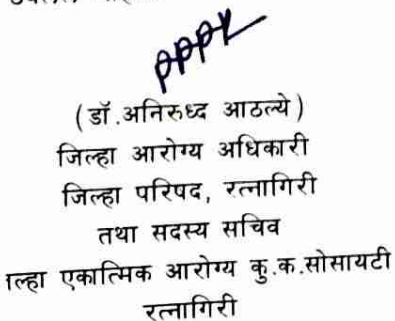 (डॉ.अनिरुध्द आठल्ये)
जिल्हा आरोग्य अधिकारी
जिल्हा परिषद, रत्नागिरी
तथा सदस्य सचिव
ल्हा एकात्मिक आरोग्य कु.क.सोसायटी
रत्नागिरी